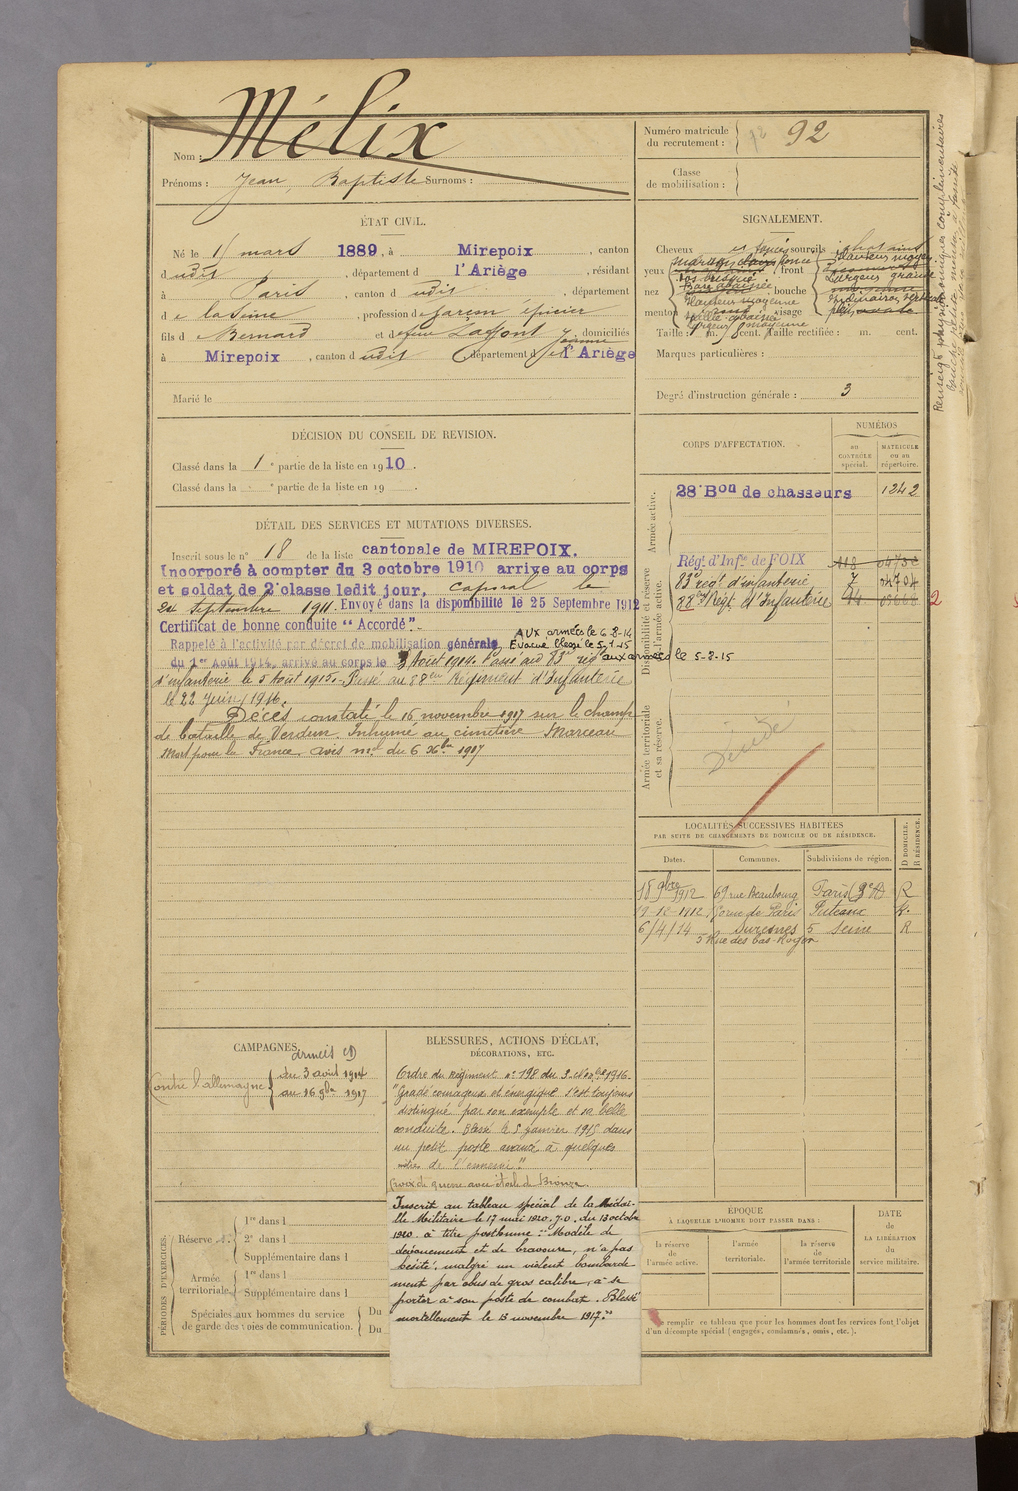 Nom : Mélix
Prénoms : Jean, Baptiste Surnoms :
Numéro matricule du recrutement : 92
Classe de mobilisation :
ÉTAT CIVIL.
Né le 11 mars 1889, à Mirepoix, canton
dudit, département d l'Ariège, résidant
à Paris, canton d udit, département
de la Seine, profession de garçon épicier
fils de Bernard et de feue Laffont Jeanne domiciliés
à Mirepoix, canton d udit, département de l'Ariège
Marié le
SIGNALEMENT.
Cheveux sourcils chatains
yeux front
nez bouche
menton visage
Taille : 1 m. cent. Taille rectifiée : m. cent.
Marques particulières :
Degré d'instruction générale : 3
Renseigts physionomiques complémentaires
DÉCISION DU CONSEIL DE REVISION.
Classé dans la 1e partie de la liste en 1910.
Classé dans la e partie de la liste en 19 .
CORPS D'AFFECTATION.
NUMÉROS
AU CONTRÔLE spécial.
MATRICULE ou au répertoire.
Armée active.
28e Bon de chasseurs 1242
Disponibilité et réserve de l'armée active.
Régt d'Infie de FOIX 418
83e régt d'infanterie 7 04704
88e Régt d'Infanterie
Armée territoriale et sa réserve.
Décédé
DÉTAIL DES SERVICES ET MUTATIONS DIVERSES.
Inscrit sous le no 18 de la liste cantonale de MIREPOIX.
Incorporé à compter du 3 octobre 1910 arrive au corps
et soldat de 2e classe ledit jour, caporal le
24 Septembre 1911. Envoyé dans la disponibilité le 25 Septembre 1912
Certificat de bonne conduite "Accordé".
Rappelé à l'activité par décret de mobilisation générale Aux armées le 6-8-14 Evacué blessé le 5-1-15
du 1er Août 1914, arrivé au corps le 3 Août 1914. Passé au 83e régt aux armées le 5-8-15
d'infanterie le 5 Août 1915. Passé au 88eme Régiment d'Infanterie
le 22 juin 1916.
Décès constaté le 16 novembre 1917 sur le champ
de bataille de Verdun. Inhumé au cimetière Marceau
Mort pour la France avis ml du 6 Xbre 1917
LOCALITÉS SUCCESSIVES HABITÉES
PAR SUITE DE CHANGEMENTS DE DOMICILE OU DE RÉSIDENCE.
Dates. Communes. Subdivisions de région. D DOMICILE. R RÉSIDENCE.
18 9bre 1912 69 rue Beaubourg Paris (3e A) R
19-12-1912 Puteaux R.
6/4/14 Suresnes Seine R
5 Rue des bas-Rogers
CAMPAGNES.
Contre l'allemagne armées
du 3 août 1914
au 16 9bre 1917
BLESSURES, ACTIONS D'ÉCLAT,
DÉCORATIONS, ETC.
Ordre du Régiment no 198 du 3 Novbre 1916.
"Gradé courageux et énergique s'est toujours
distingué par son exemple et sa belle
conduite. Blessé le 5 janvier 1915 dans
un petit poste avancé à quelques
mètres de l'ennemi".
Croix de guerre avec étoile de Bronze.
Inscrit au tableau spécial de la Médail-
lle Militaire le 17 mai 1920. J.O. du 13 octobre
1920 à titre posthume : "Modèle de
dévouement et de bravoure, n'a pas
hésité, malgré un violent bombarde
ment par obus de gros calibre, à se
porter à son poste de combat. Blessé
mortellement le 15 novembre 1917."
PÉRIODES D'EXERCICES.
Réserve
1re dans l
2e dans l
Supplémentaire dans l
Armée territoriale.
1re dans l
Supplémentaire dans l
Spéciales aux hommes du service
de garde des voies de communication.
Du
Du
ÉPOQUE
À LAQUELLE L'HOMME DOIT PASSER DANS :
la réserve de l'armée active.
l'armée territoriale.
la réserve de l'armée territoriale
DATE de LA LIBÉRATION du service militaire.
remplir ce tableau que pour les hommes dont les services font l'objet
d'un décompte spécial (engagés, condamnés, omis, etc.).